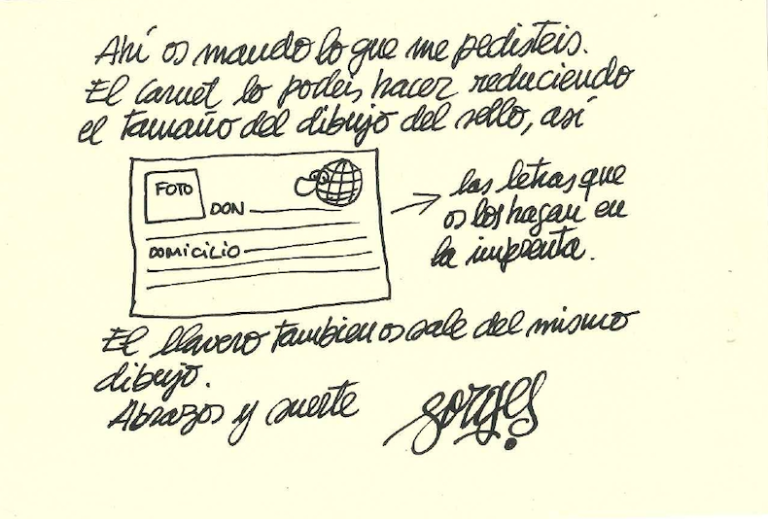 Ahí os mando lo que me pedisteis.
El carnet lo podeis hacer reduciendo
el tamaño del dibujo del sello, así
FOTO
DON
DOMICILIO
las letras que
os las hagan en
la imprenta.
El llavero tambien os sale del mismo
dibujo.
Abrazos y suerte
gorges